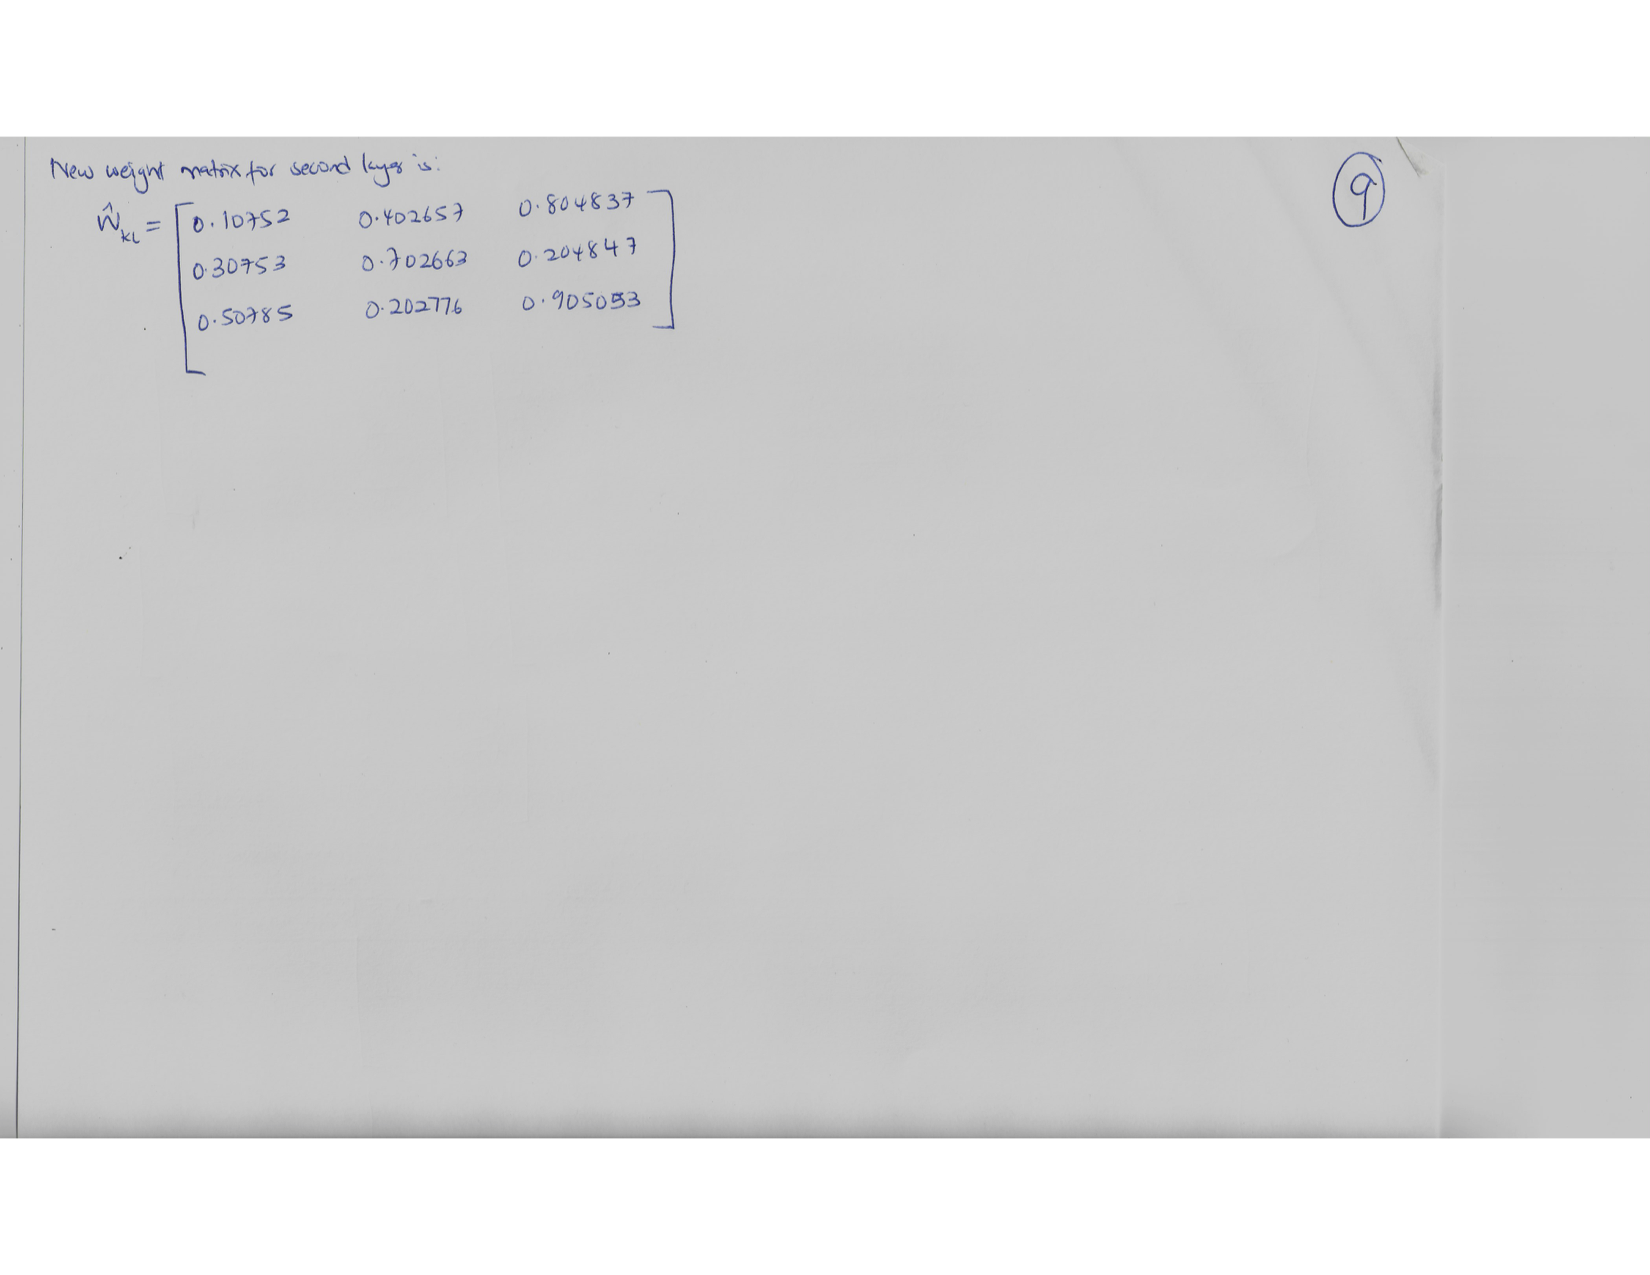 New weight matrix for second layer is:
9
Ŵ_KL = [ 0.10752 0.402657 0.804837
0.30753 0.702663 0.204847
0.50785 0.202776 0.905053 ]